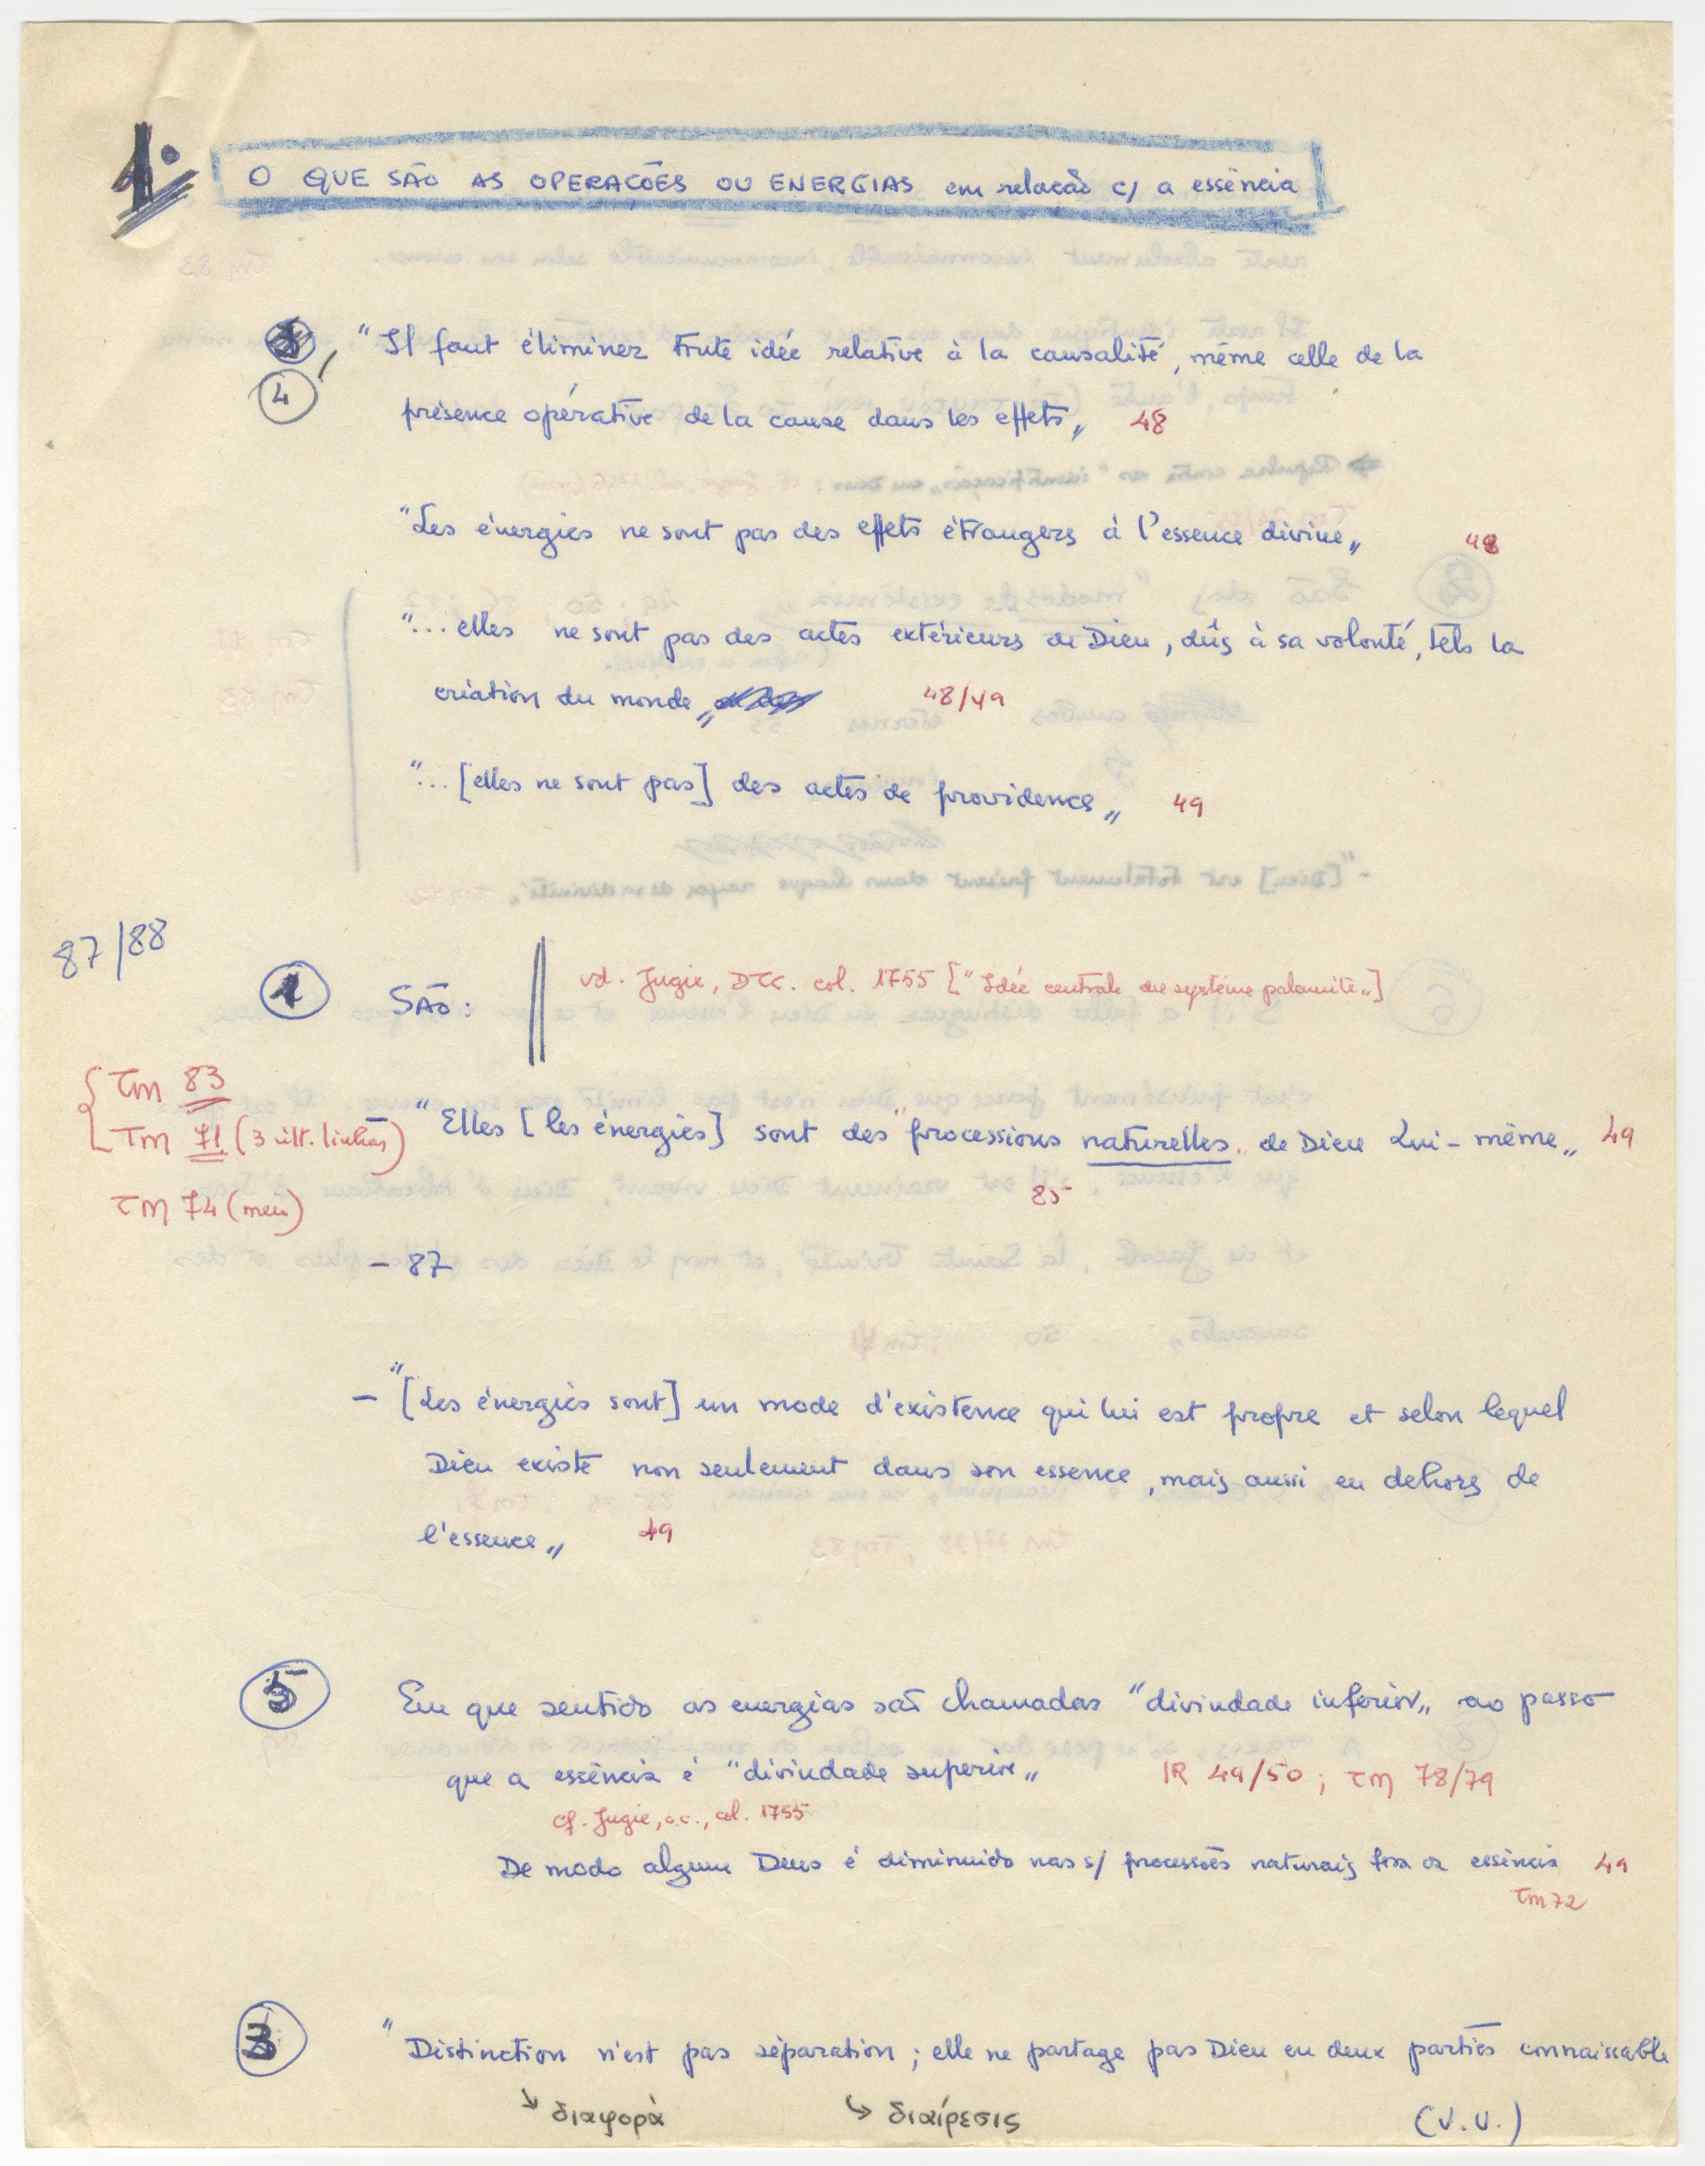 1.
O QUE SÃO AS OPERAÇÕES OU ENERGIAS em relação c/ a essência
4
"Il faut éliminer toute idée relative à la causalité, même celle de la
présence opérative de la cause dans les effets„ 48
"Les énergies ne sont pas des effets étrangers à l'essence divine„ 48
"... elles ne sont pas des actes extérieurs de Dieu, dûs à sa volonté, tels la
création du monde„ 48/49
"... [elles ne sont pas] des actes de providence„ 49
87/88
1 SÃO: vd. Jugie, DTC. col. 1755 ["Idée centrale du système palamite„]
TM 83
TM 71 (3 últ. linhas)
"Elles [les énergies] sont des "processions naturelles„ de Dieu Lui-même„ 49
85
TM 74 (meu)
- 87
- "[Les énergies sont] un mode d'existence qui lui est propre et selon lequel
Dieu existe non seulement dans son essence, mais aussi en dehors de
l'essence„ 49
5 Em que sentido as energias são chamadas "divindade inferior„ ao passo
que a essência é "divindade superior„ IR 49/50; TM 78/79
cf. Jugie, o.c., col. 1755
De modo algum Deus é diminuido nas s/ processões naturais fora da essência 49
TM 72
3 "Distinction n'est pas séparation; elle ne partage pas Dieu en deux parties connaissable
↘ διαφορὰ ↳ διαίρεσις (V.V.)